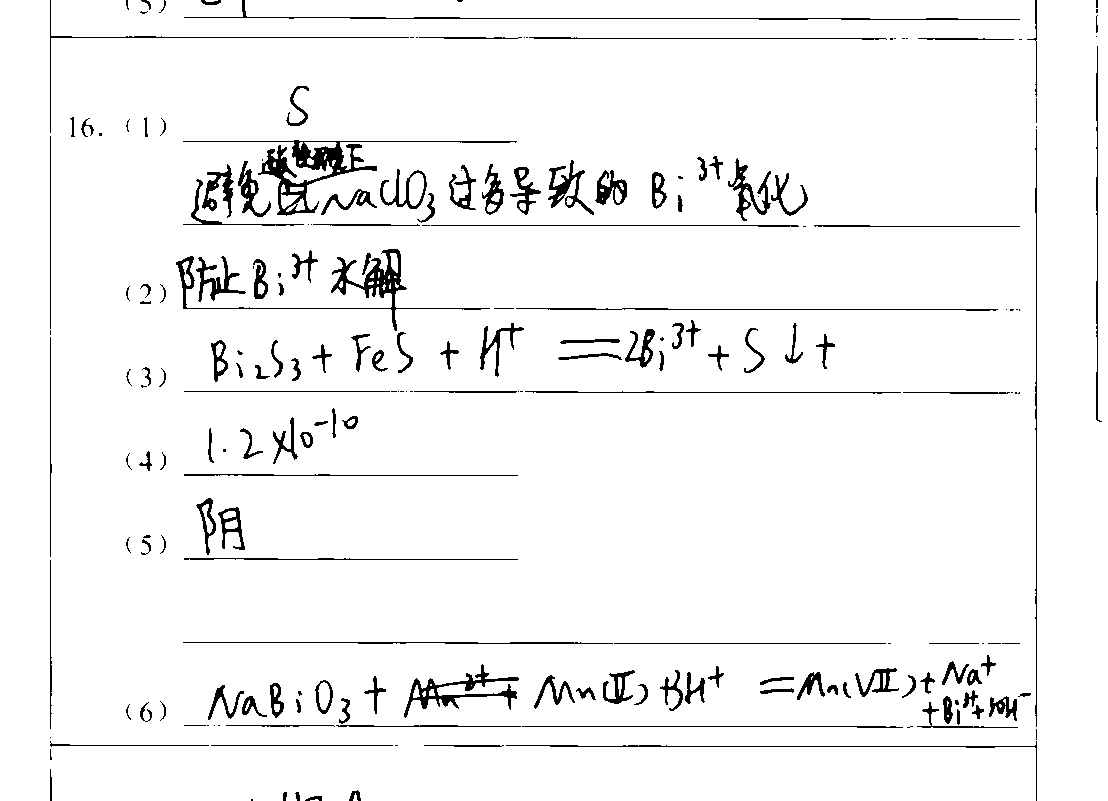 (5)
16. (1) S
酸性环境下
避免NaClO₃过多导致的Bi³⁺氧化
(2) 防止Bi³⁺水解
(3) Bi₂S₃ + FeS + H⁺ == 2Bi³⁺ + S↓ +
(4) 1.2×10⁻¹⁰
(5) 阴
(6) NaBiO₃ + Mn(Ⅱ) + 3H⁺ == Mn(Ⅶ) + Na⁺
+ Bi³⁺ + 3OH⁻